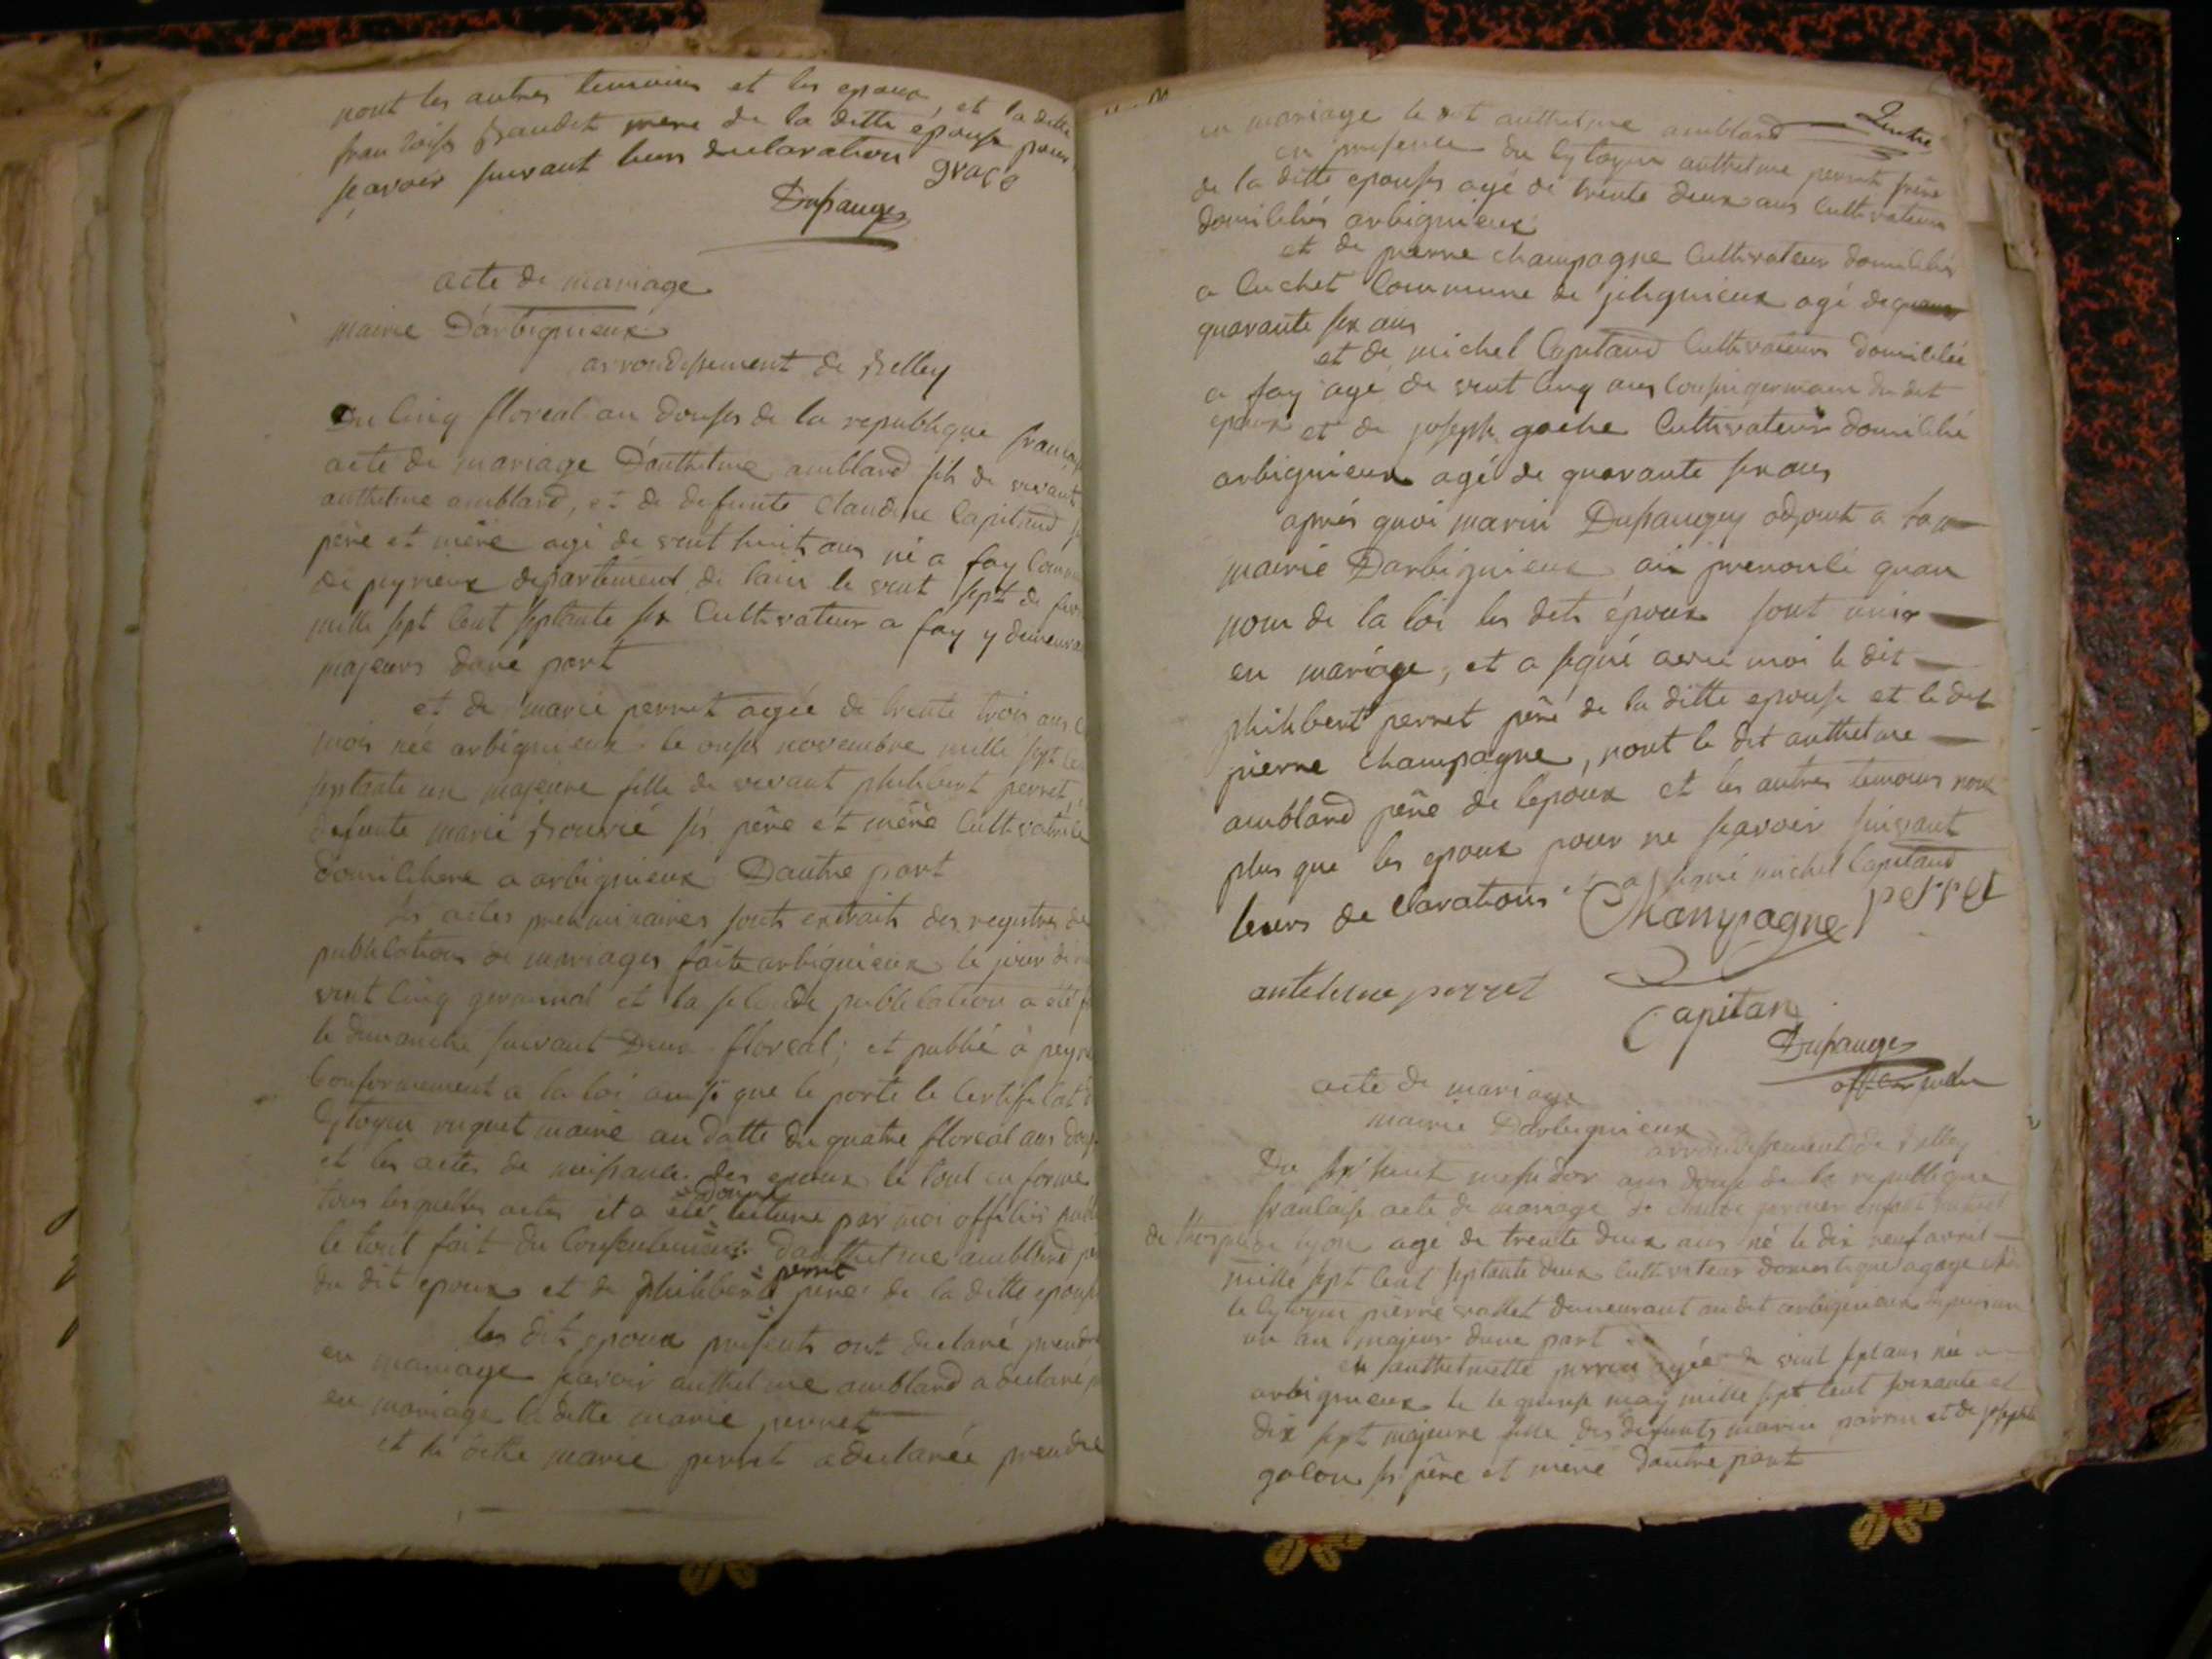 nont les autres temoins et les epoux, et la ditte
francoise Baudet mere de la ditte epouse pour
sçavoir suivant leurs declaration graço
Dupaugey
acte de mariage
mairie D'arbignieux
arrondissement de Belley
Du cinq floreal an douses de la republique francaise
acte de mariage D'anthelme amblard fils de vivant
anthelme amblard, et de defunte Claudine Capitand
père et mère agé de vent huit ans né a fay Commu
de peyrieux departement de lain le vent sept de
mille sept cent septante six Cultivateur a fay y demeura
majeurs dune part
et de marie perret agée de trente trois ans
mois née arbignieux le onses novembre mille sept ce
septante un majeure fille de vivant philibert perret,
defunte marie Bouvié ses père et mère Cultivatrice
domiciliere a arbignieux Dautre part
les actes preliminaires sonts extraits des registres de
publications de mariages faite arbignieux le jour di
vent cinq germinal et la seconde publication a été
le dimanche suivant Deux floreal; et publié à peyr
Conformement a la loi ainsi que le porte le Certificat
Cytoyen ruquet maire au datte du quatre floreal ans dou
et les actes de naissance des epoux le tout en forme
tous lesquelles actes il a été donné lecture par moi officier publi
le tout fait du Consentement danthelme amblard pe
du dit epoux et de philibert perret père de la ditte epouse
les dits epoux presents ont declaré prendre
en mariage savoir anthelme amblard a declaré p
en mariage la ditte marie perret
et la ditte marie perret a declarée prendre
en mariage le dit anthelme amblard
en presence du Cytoyen anthelme perret frère
de la ditte epouses agé de trente deux ans Cultivateur
domiciliés arbignieux
et de pierre champagne Cultivateur domiciliés
a Cuchet Commune de jilignieux agé de
quarante six ans
et de michel Capitand Cultivateurs domicilié
a fay agé de vent cinq ans Cousin germain du dit
epoux et de joseph gache Cultivateur domicilié
arbignieux agé de quarante six ans
après quoi marin Dupaugey adjoint a la
mairie Darbignieux ai prenoncé quau
nom de la loi les dits époux sont unis
en mariage, et a signé avec moi le dit
philibert perret père de la ditte epouse et le dit
pierre champagne, nont le dit anthelme
amblard père de lepoux et les autres temoins non
plus que les epoux pour ne sçavoir suivant
leurs declarations a signé michel Capitand
Champagne perret
antelme perret
Capitan
Dupaugey
acte de mariage
mairie Darbignieux
arrondissement de Belley
Du messidor ans douze de la republique
francaise acte de mariage de
de lyon agé de trente deux ans né le dix neuf avril
mille sept cent septante deux Cultivateur domestique a gage
le Cytoyen pierre vallet demeurant audit arbignieux depuis un
un an majeur dune part
et anthelmette perrin agée de vint sept ans née a
arbignieux le le quinse may mille sept cent soixante et
dix sept majeure fille des defunts marin perrin et de josephte
galon ses père et mère dautre part